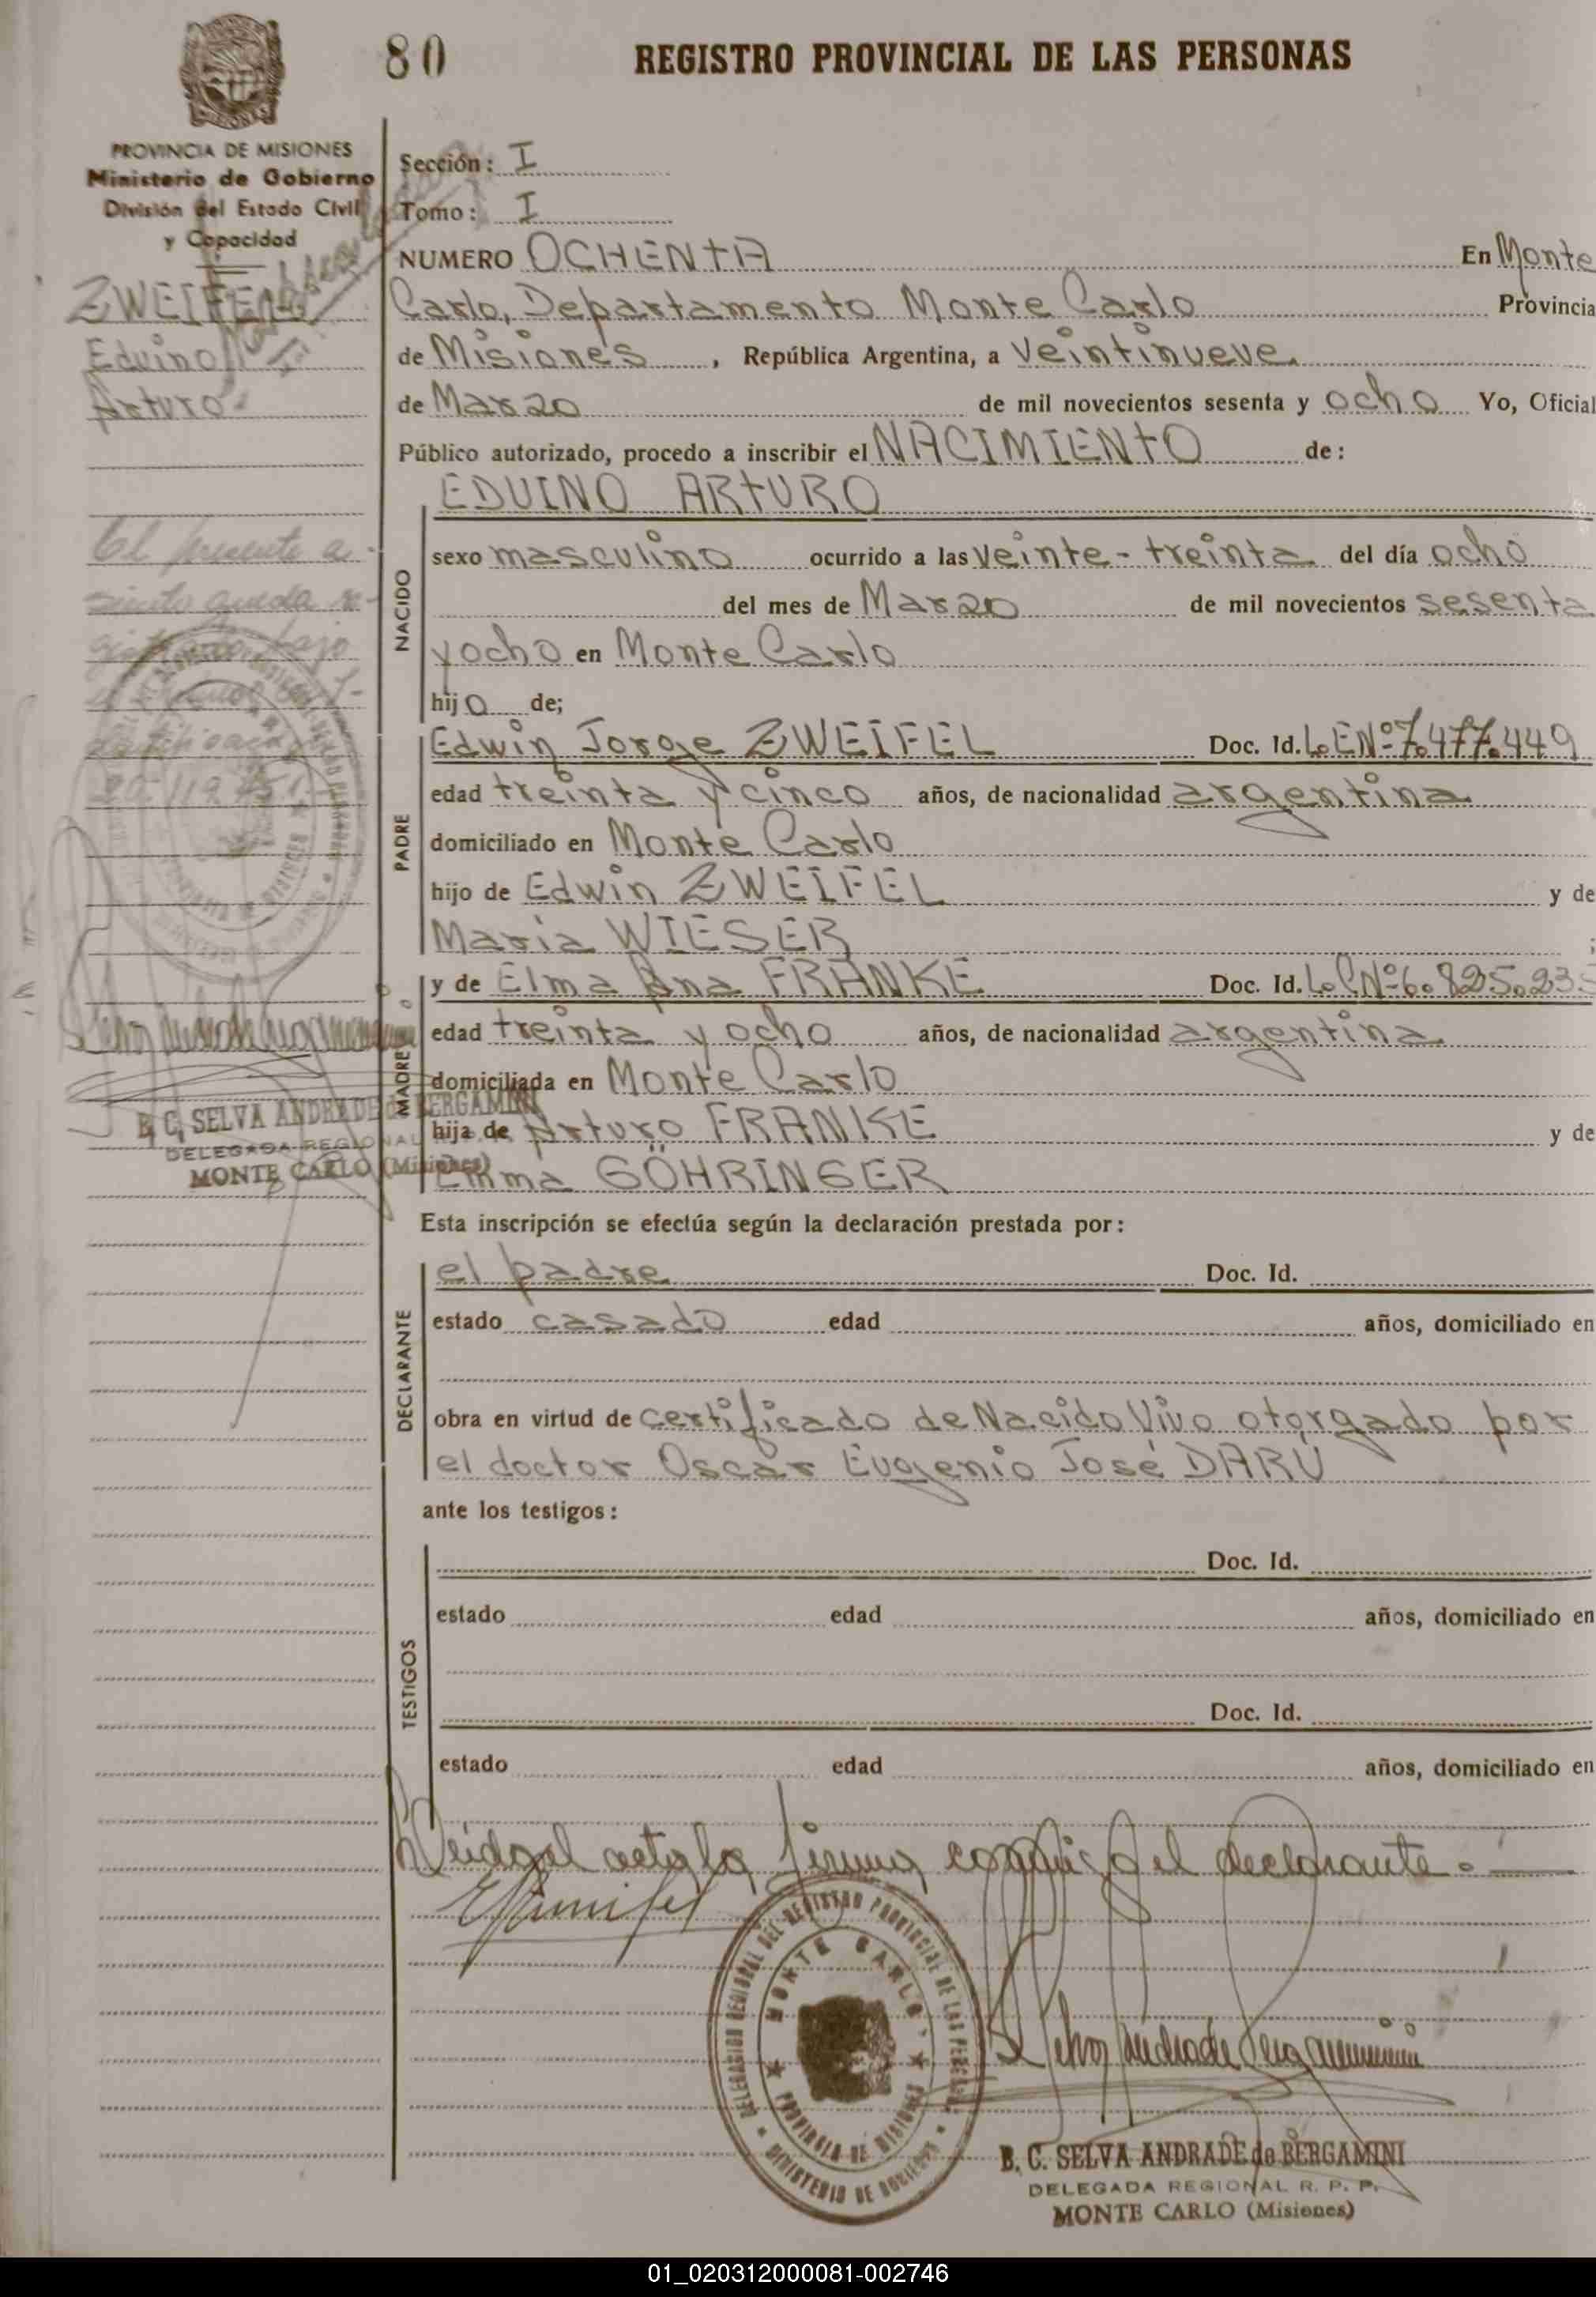 80
REGISTRO PROVINCIAL DE LAS PERSONAS
PROVINCIA DE MISIONES
Ministerio de Gobierno
División del Estado Civil
y Capacidad
ZWEIFEL
Eduino
Arturo
El presente a-
siento queda re-
gistrado bajo
Sección: I
Tomo: I
NUMERO OCHENTA En Monte
Carlo, Departamento Monte Carlo Provincia
de Misiones, República Argentina, a Veintinueve
de Marzo de mil novecientos sesenta y ocho Yo, Oficial
Público autorizado, procedo a inscribir el NACIMIENTO de:
EDUINO ARTURO
NACIDO
sexo masculino ocurrido a las veinte-treinta del día ocho
del mes de Marzo de mil novecientos sesenta
y ocho en Monte Carlo
hijo de;
PADRE
Edwin Jorge ZWEIFEL Doc. Id. L.E.Nº 7.477.449
edad treinta y cinco años, de nacionalidad argentina
domiciliado en Monte Carlo
hijo de Edwin ZWEIFEL y de
María WIESER ;
MADRE
y de Elma Ana FRANKE Doc. Id. L.C.Nº 6.825.235
edad treinta y ocho años, de nacionalidad argentina
domiciliada en Monte Carlo
hija de Arturo FRANKE y de
Emma GÖHRINGER
B. C. SELVA ANDRADE de BERGAMINI
DELEGADA REGIONAL
MONTE CARLO (Misiones)
Esta inscripción se efectúa según la declaración prestada por:
DECLARANTE
el padre Doc. Id.
estado casado edad años, domiciliado en
obra en virtud de certificado de Nacido Vivo otorgado por
el doctor Oscar Eugenio José DARÚ
ante los testigos:
TESTIGOS
Doc. Id.
estado edad años, domiciliado en
Doc. Id.
estado edad años, domiciliado en
Leída el acta la firma conmigo el declarante.
DELEGACION REGIONAL DEL REGISTRO PROVINCIAL DE LAS PERSONAS
MONTE CARLO
PROVINCIA DE MISIONES
MINISTERIO DE GOBIERNO
B. C. SELVA ANDRADE de BERGAMINI
DELEGADA REGIONAL R. P. P.
MONTE CARLO (Misiones)
01_020312000081-002746